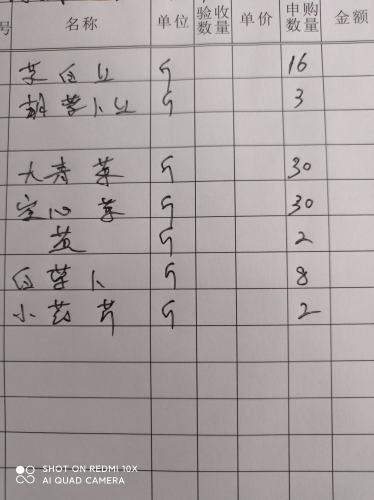 号 名称 单位 验收数量 单价 申购数量 金额
茭白丝 斤 16
胡萝卜丝 斤 3
大青菜 斤 30
空心菜 斤 30
斤 2
白萝卜 斤 8
小药芹 斤 2
SHOT ON REDMI 10X
AI QUAD CAMERA